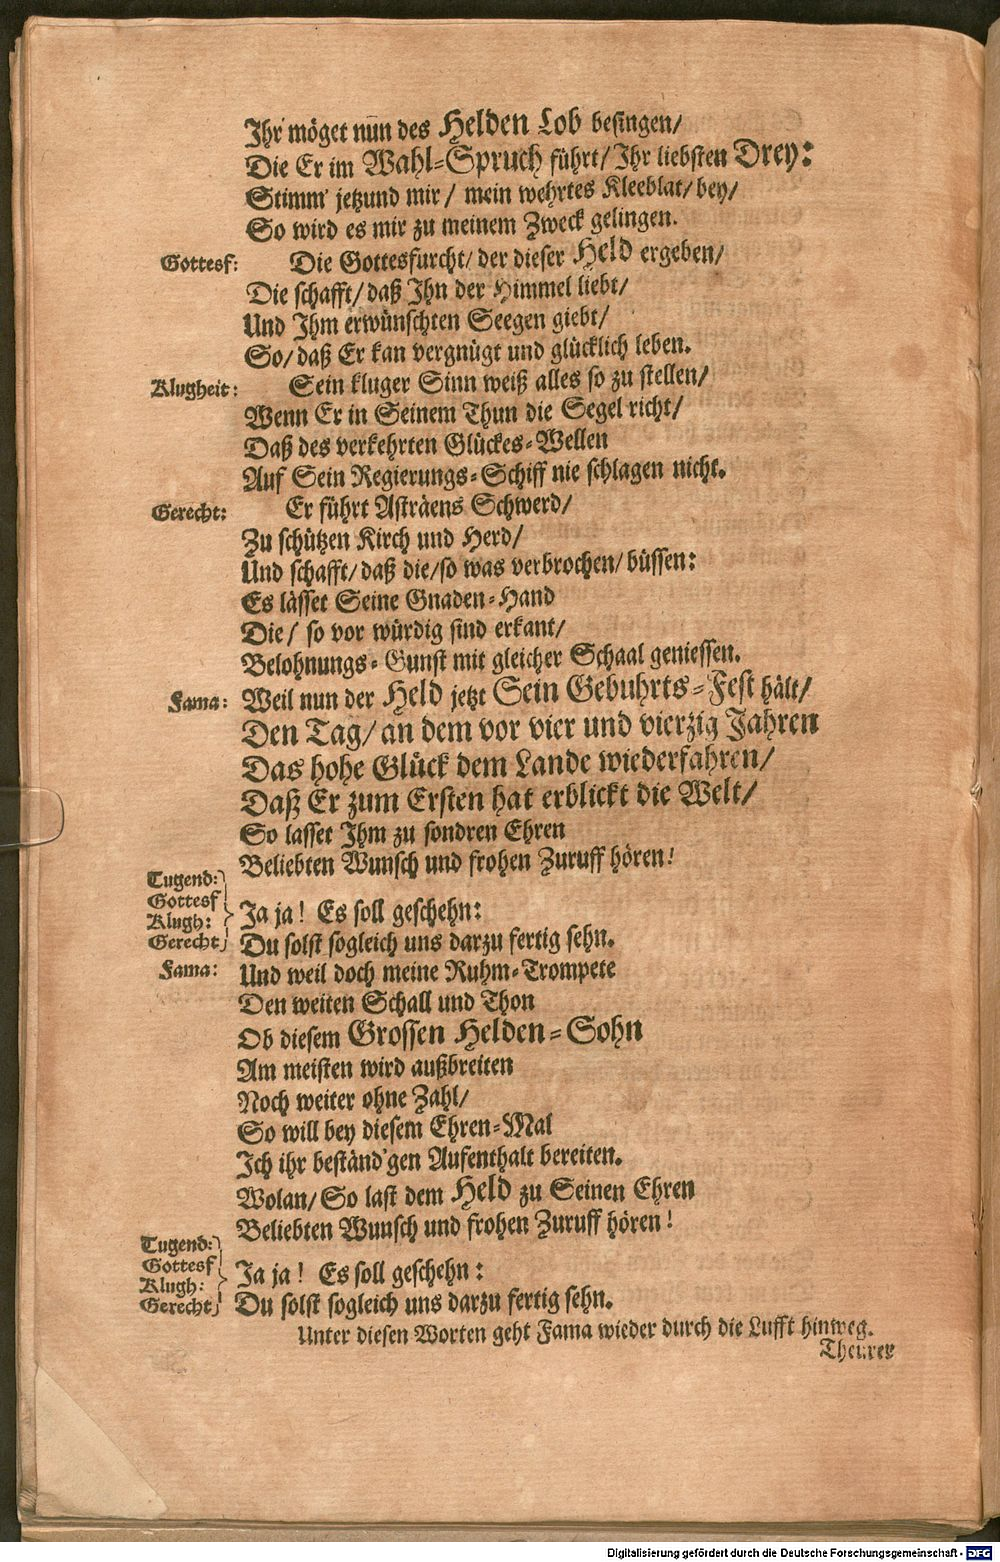 Ihr möget nūn des Helden Lob besingen/
Die Er im Wahl-Spruch führt/ Ihr liebsten Drey:
Stimm' jetzund mir/ mein wehrtes Kleeblat/ bey/
So wird es mir zu meinem Zweck gelingen.
Gottesf: Die Gottesfurcht/ der dieser Held ergeben/
Die schafft/ daß Ihn der Himmel liebt/
Und Ihm erwünschten Seegen giebt/
So/ daß Er kan vergnügt und glücklich leben.
Klugheit: Sein kluger Sinn weiß alles so zu stellen/
Wenn Er in Seinem Thun die Segel richt/
Daß des verkehrten Glückes-Wellen
Auf Sein Regierungs-Schiff nie schlagen nicht.
Gerecht: Er führt Asträens Schwerd/
Zu schützen Kirch und Herd/
Und schafft/ daß die/ so was verbrochen/ büssen:
Es lässet Seine Gnaden-Hand
Die/ so vor würdig sind erkant/
Belohnungs-Gunst mit gleicher Schaal geniessen.
Fama: Weil nun der Held jetzt Sein Gebuhrts-Fest hält/
Den Tag/ an dem vor vier und vierzig Jahren
Das hohe Glück dem Lande wiederfahren/
Daß Er zum Ersten hat erblickt die Welt/
So lasset Ihm zu sondren Ehren
Beliebten Wunsch und frohen Zuruff hören!
Tugend:
Gottesf
Klugh: Ja ja! Es soll geschehn:
Gerecht Du solst sogleich uns darzu fertig sehn.
Fama: Und weil doch meine Ruhm-Trompete
Den weiten Schall und Thon
Ob diesem Grossen Helden-Sohn
Am meisten wird außbreiten
Noch weiter ohne Zahl/
So will bey diesem Ehren-Mal
Ich ihr beständ'gen Aufenthalt bereiten.
Wolan/ So last dem Held zu Seinen Ehren
Beliebten Wunsch und frohen Zuruff hören!
Tugend:
Gottesf
Klugh: Ja ja! Es soll geschehn:
Gerecht Du solst sogleich uns darzu fertig sehn.
Unter diesen Worten geht Fama wieder durch die Lufft hinweg.
Theurer
Digitalisierung gefördert durch die Deutsche Forschungsgemeinschaft - DFG